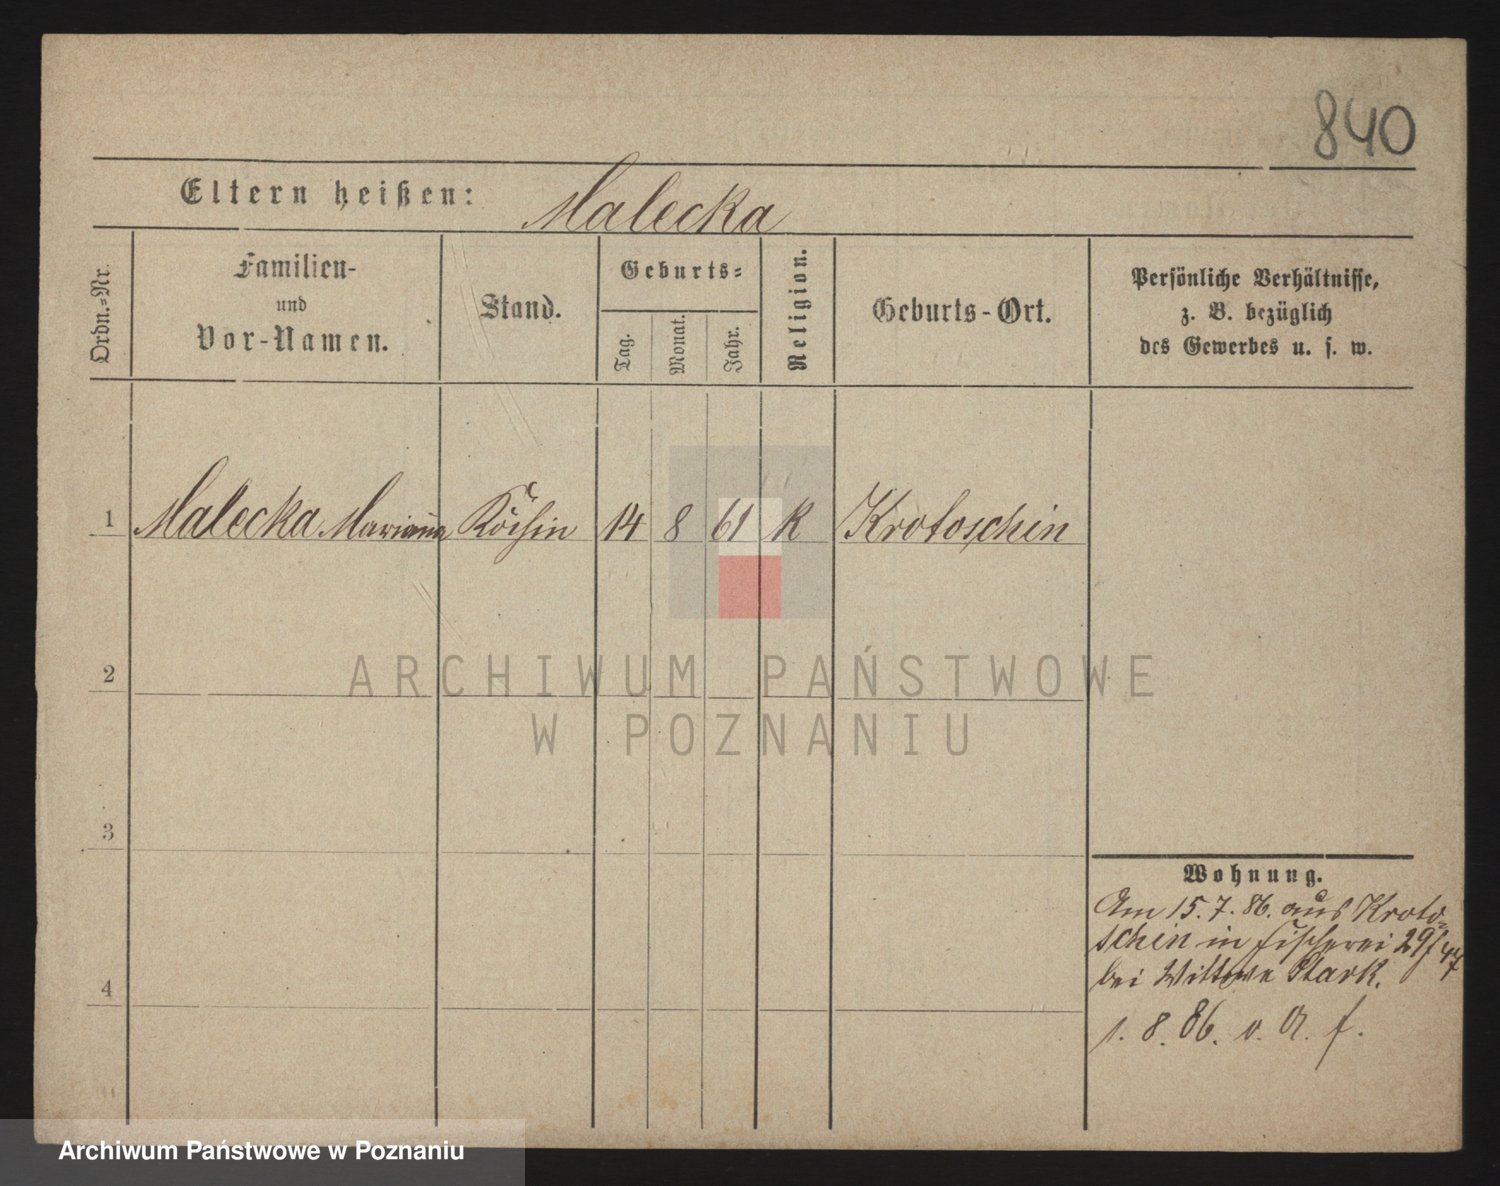 840
Eltern heißen: Malecka
Ordn.-Nr.
Familien-
und
Vor-Namen.
Stand.
Geburts-
Tag.
Monat.
Jahr.
Religion.
Geburts-Ort.
Persönliche Verhältnisse,
z. B. bezüglich
des Gewerbes u. s. w.
1 Malecka Marianna Köchin 14 8 61 k Krotoschin
2
3
4
Wohnung.
Am 15.7.86. aus Kroto-
schin in Fischerei 29/47
bei Wittwe Stark.
1. 8. 86. v. A. f.
ARCHIWUM PAŃSTWOWE
W POZNANIU
Archiwum Państwowe w Poznaniu